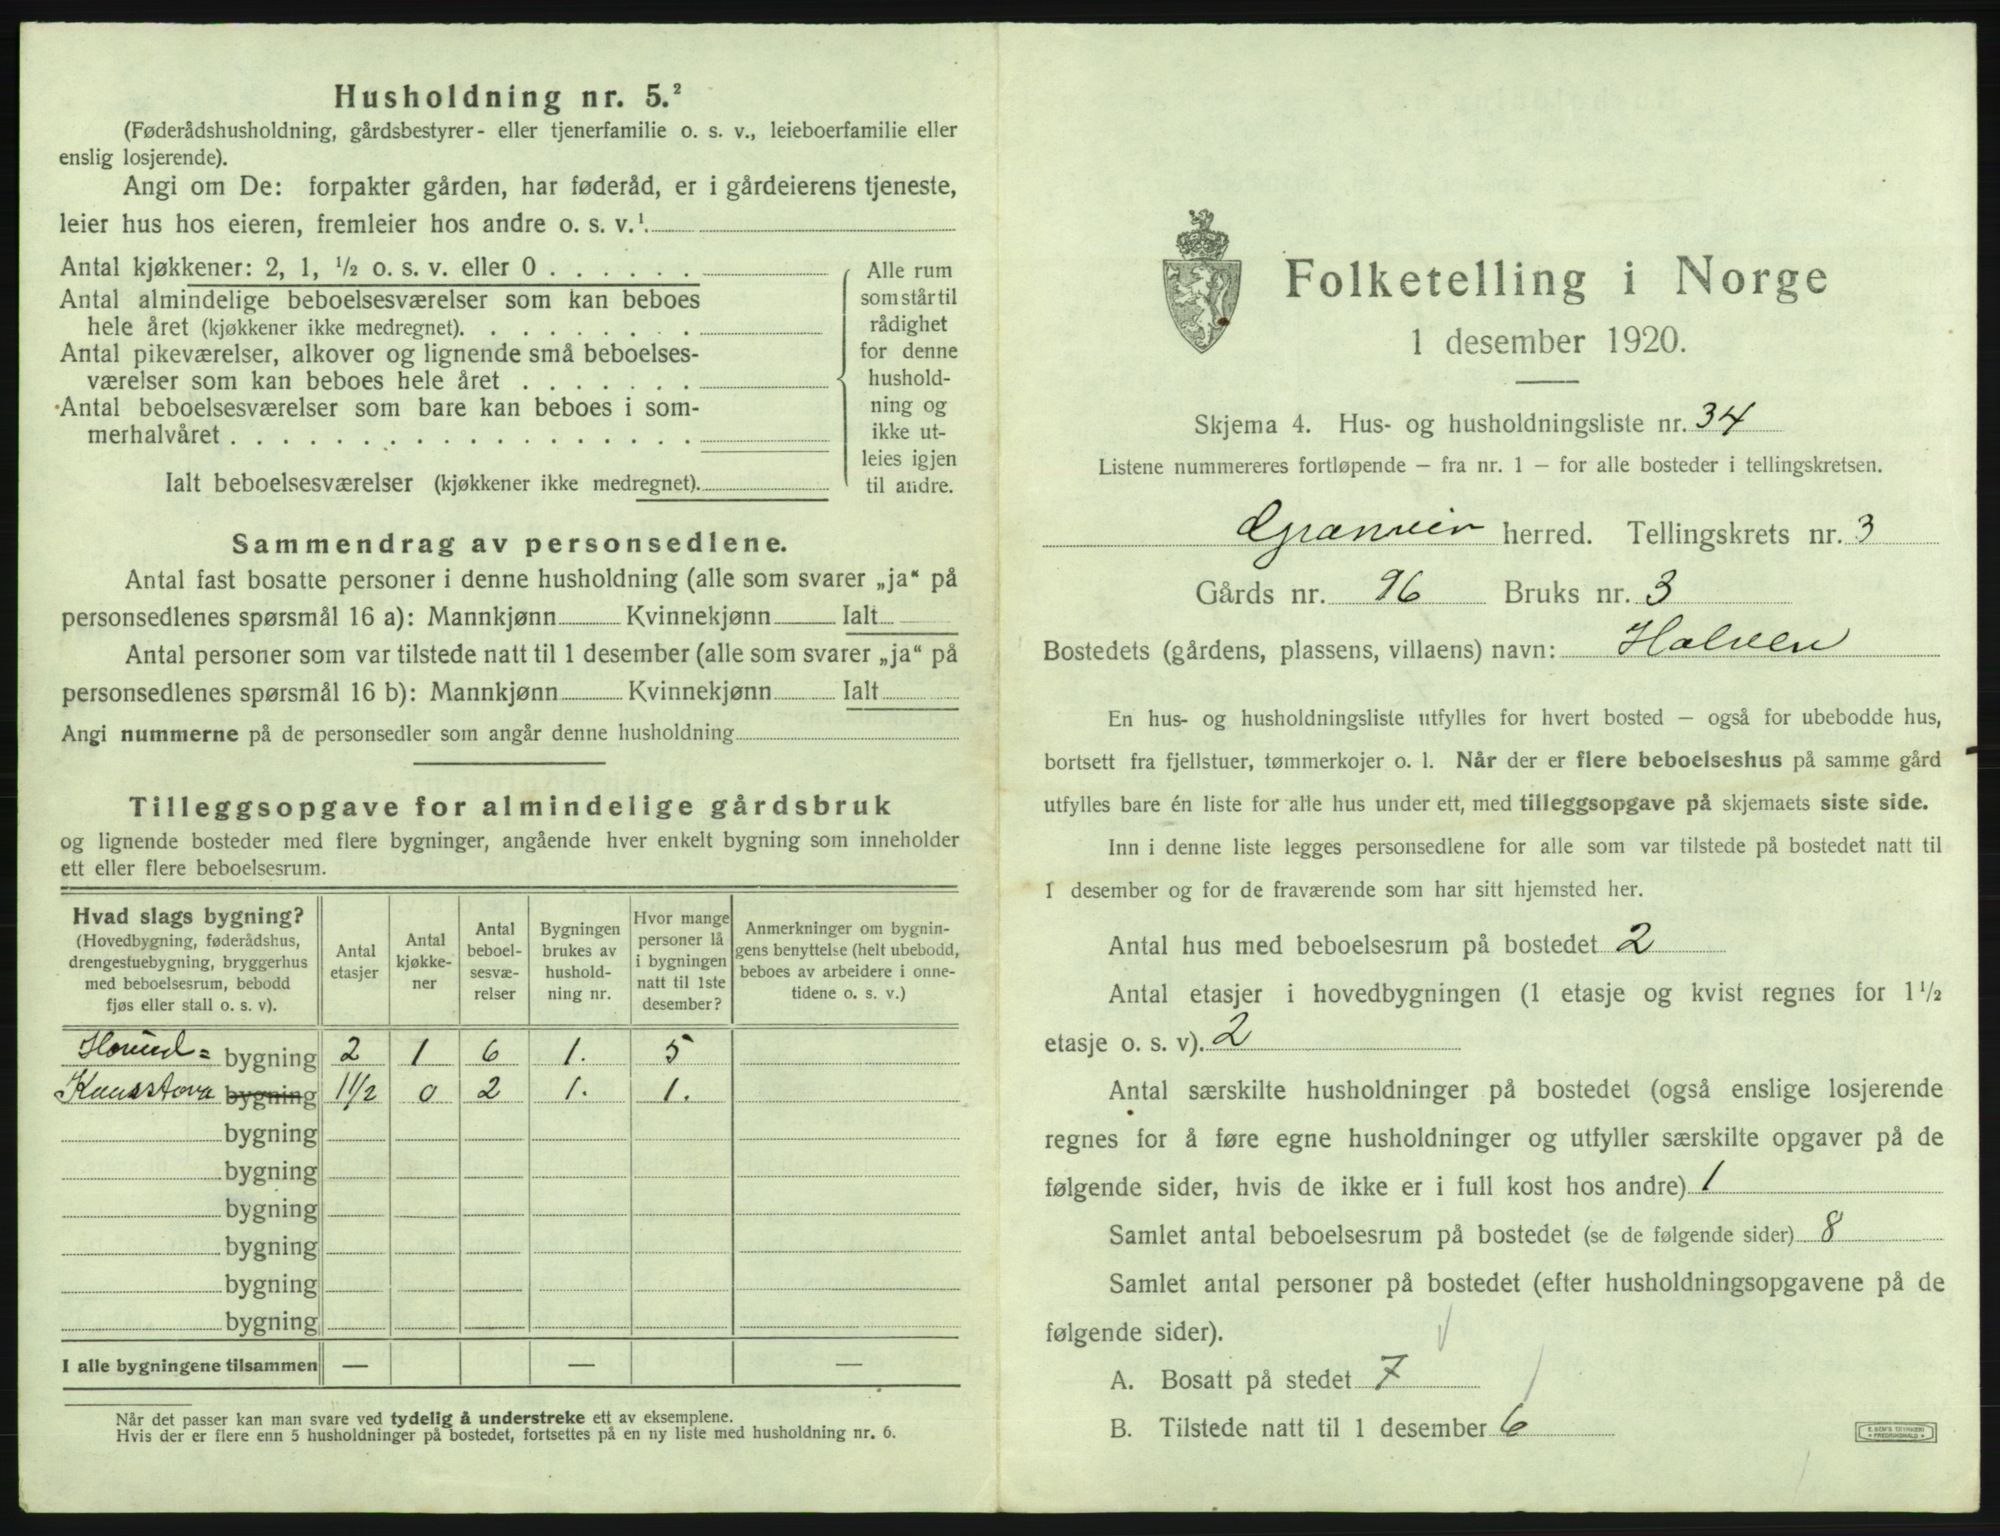 Husholdning nr. 5.²
(Føderådshusholdning, gårdsbestyrer- eller tjenerfamilie o. s. v., leieboerfamilie eller
enslig losjerende).
Angi om De: forpakter gården, har føderåd, er i gårdeierens tjeneste,
leier hus hos eieren, fremleier hos andre o. s. v.¹
Antal kjøkkener: 2, 1, ½ o. s. v. eller 0 . . . . . .
Antal almindelige beboelsesværelser som kan beboes
hele året (kjøkkener ikke medregnet). . . . . . . . .
Antal pikeværelser, alkover og lignende små beboelses-
værelser som kan beboes hele året . . . . . . .
Antal beboelsesværelser som bare kan beboes i som-
merhalvåret . . . . . . . . . . . . . . . . . .
Ialt beboelsesværelser (kjøkkener ikke medregnet).
Alle rum
som står til
rådighet
for denne
hushold-
ning og
ikke ut-
leies igjen
til andre.
Sammendrag av personsedlene.
Antal fast bosatte personer i denne husholdning (alle som svarer „ja“ på
personsedlenes spørsmål 16 a): Mannkjønn Kvinnekjønn Ialt
Antal personer som var tilstede natt til 1 desember (alle som svarer „ja“ på
personsedlenes spørsmål 16 b): Mannkjønn Kvinnekjønn Ialt
Angi nummerne på de personsedler som angår denne husholdning
Tilleggsopgave for almindelige gårdsbruk
og lignende bosteder med flere bygninger, angående hver enkelt bygning som inneholder
ett eller flere beboelsesrum.
Hvad slags bygning?
(Hovedbygning, føderådshus,
drengestuebygning, bryggerhus
med beboelsesrum, bebodd
fjøs eller stall o. s. v).
Antal
etasjer
Antal
kjøkke-
ner
Antal
beboel-
sesvæ-
relser
Bygningen
brukes av
hushold-
ning nr.
Hvor mange
personer lå
i bygningen
natt til 1ste
desember?
Anmerkninger om bygnin-
gens benyttelse (helt ubebodd,
beboes av arbeidere i onne-
tidene o. s. v.)
Hovud= bygning 2 1 6 1. 5
Kaasstova bygning 1½ 0 2 1. 1.
bygning
bygning
bygning
bygning
bygning
bygning
I alle bygningene tilsammen — — —
Når det passer kan man svare ved tydelig å understreke ett av eksemplene.
Hvis der er flere enn 5 husholdninger på bostedet, fortsettes på en ny liste med husholdning nr. 6.
Folketelling i Norge
1 desember 1920.
Skjema 4. Hus- og husholdningsliste nr. 34
Listene nummereres fortløpende – fra nr. 1 – for alle bosteder i tellingskretsen.
Granvin herred. Tellingskrets nr. 3
Gårds nr. 96 Bruks nr. 3
Bostedets (gårdens, plassens, villaens) navn: Halven
En hus- og husholdningsliste utfylles for hvert bosted – også for ubebodde hus,
bortsett fra fjellstuer, tømmerkojer o. l. Når der er flere beboelseshus på samme gård
utfylles bare én liste for alle hus under ett, med tilleggsopgave på skjemaets siste side.
Inn i denne liste legges personsedlene for alle som var tilstede på bostedet natt til
1 desember og for de fraværende som har sitt hjemsted her.
Antal hus med beboelsesrum på bostedet 2
Antal etasjer i hovedbygningen (1 etasje og kvist regnes for 1½
etasje o. s. v). 2
Antal særskilte husholdninger på bostedet (også enslige losjerende
regnes for å føre egne husholdninger og utfyller særskilte opgaver på de
følgende sider, hvis de ikke er i full kost hos andre) 1
Samlet antal beboelsesrum på bostedet (se de følgende sider) 8
Samlet antal personer på bostedet (efter husholdningsopgavene på de
følgende sider).
A. Bosatt på stedet 7
B. Tilstede natt til 1 desember 6
E. SEM'S TRYKKERI
• FREDRIKSHALD •